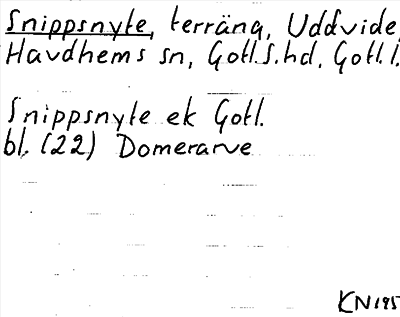 Snippsnyte, terräng, Uddvide,
Havdhems sn, Gotl.S.hd, Gotl.l.
Snippsnyte ek Gotl.
bl. (22) Domerarve
KN195